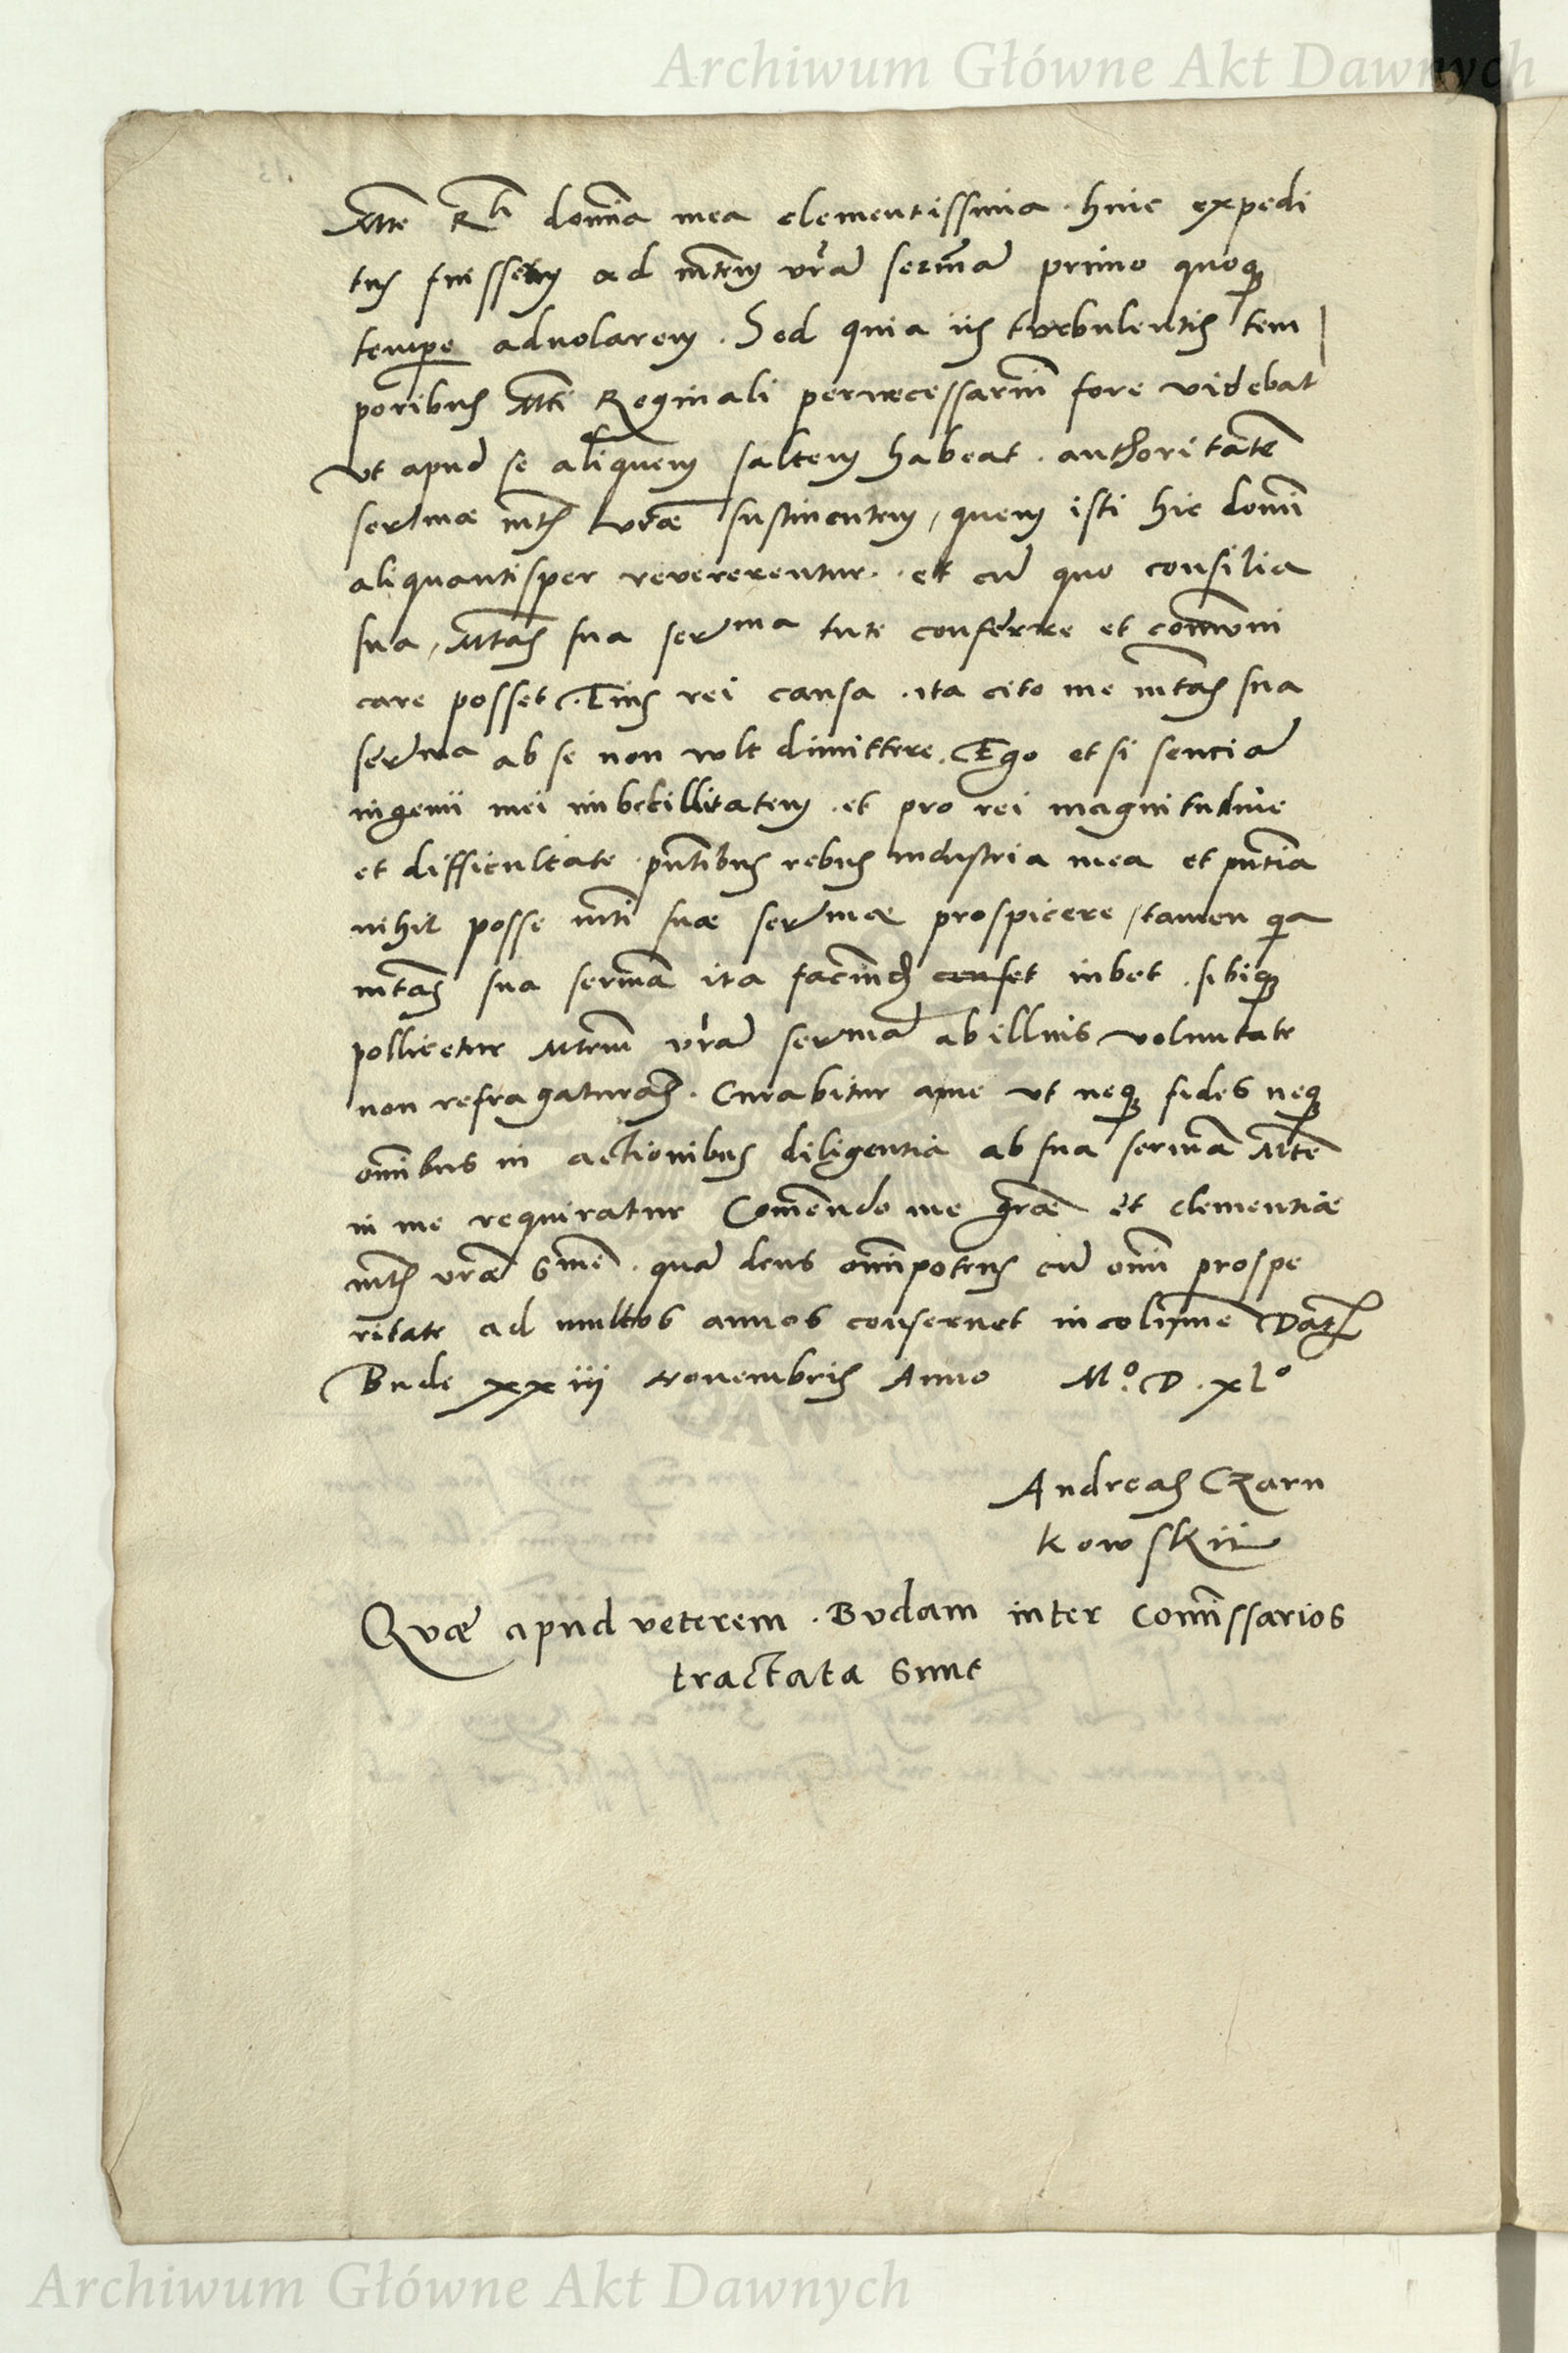 Archiwum Główne Akt Dawnych
Mte Rli domina mea clementissima. hinc expedi
tus fuissem ad mtem vram sermam primo quoq
tempe aduolarem. Sed quia iis turbulentis tem
poribus Mti Reginali pernecessarium fore videbat
vt apud se aliquem saltem habeat. authoritatem
sermae mtis vrae sustinentem, quem isti hic domini
aliquantisper revererentur. et cum quo consilia
sua, Mtas sua serma tute conferre et comuni
care posset. Eius rei causa. ita cito me mtas sua
serma ab se non vult dimittere. Ego et si senciam
ingenii mei imbecillitatem. et pro rei magnitudine
et difficultate. pntibus rebus industria mea et pntia
nihil posse mti suae sermae prospicere, tamen qa
mtas sua serma ita faciund censet iubet. sibiq
pollicetur Mtem vram sermam ab illius voluntate
non refragaturam. Curabitur a me vt neq fides neq
omnibus in actionibus diligentia ab sua serma Mte
in me requiratur Comendo me grae et clementiae
mtis vrae Sme. quam deus omnipotens cum omni prospe
ritate ad multos annos conseruet incolumem Dat
Bude xxiii Nouembris Anno Mº. D. xlº
Andreas Czarn
kowskii
Quae apud veterem. Budam inter Comissarios
tractata sunt
Archiwum Główne Akt Dawnych